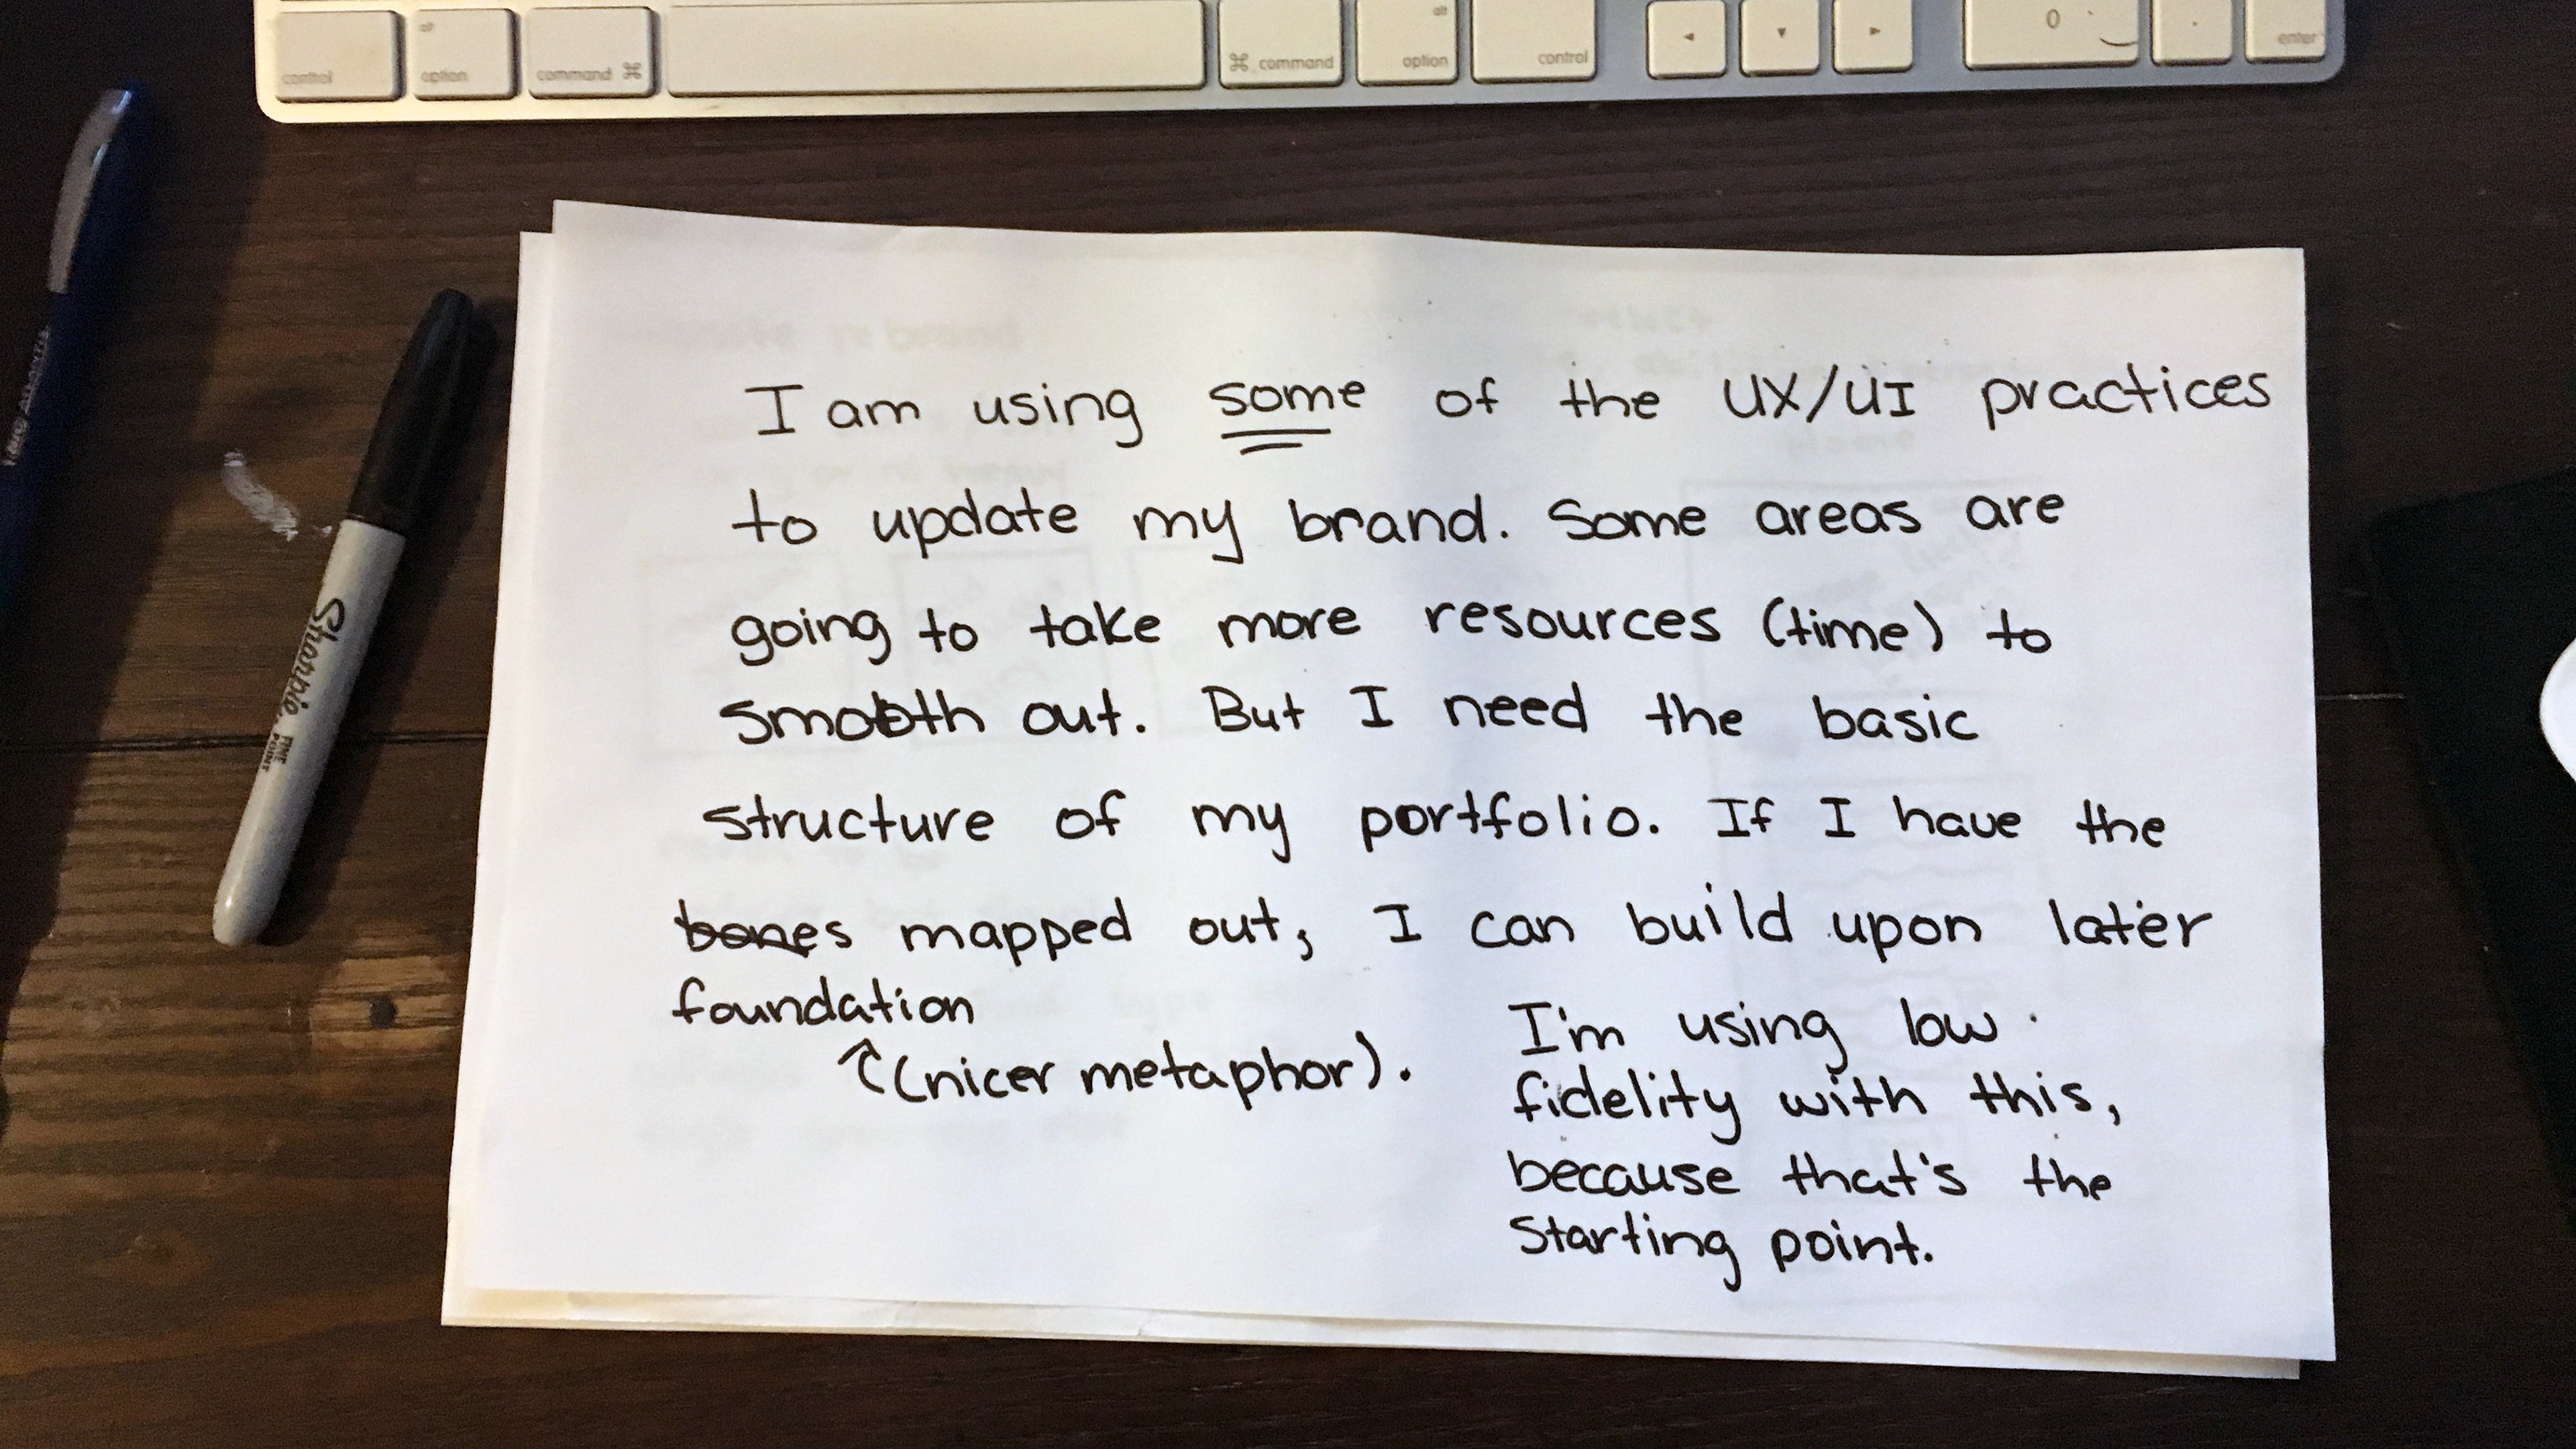 control
alt
option
command ⌘
⌘ command
alt
option
control
◄
▼
►
0
.
enter
Sharpie.
FINE
POINT
I am using some of the UX/UI practices
to update my brand. Some areas are
going to take more resources (time) to
smooth out. But I need the basic
structure of my portfolio. If I have the
bones mapped out, I can build upon later
foundation
↑(nicer metaphor).
I'm using low
fidelity with this,
because that's the
starting point.